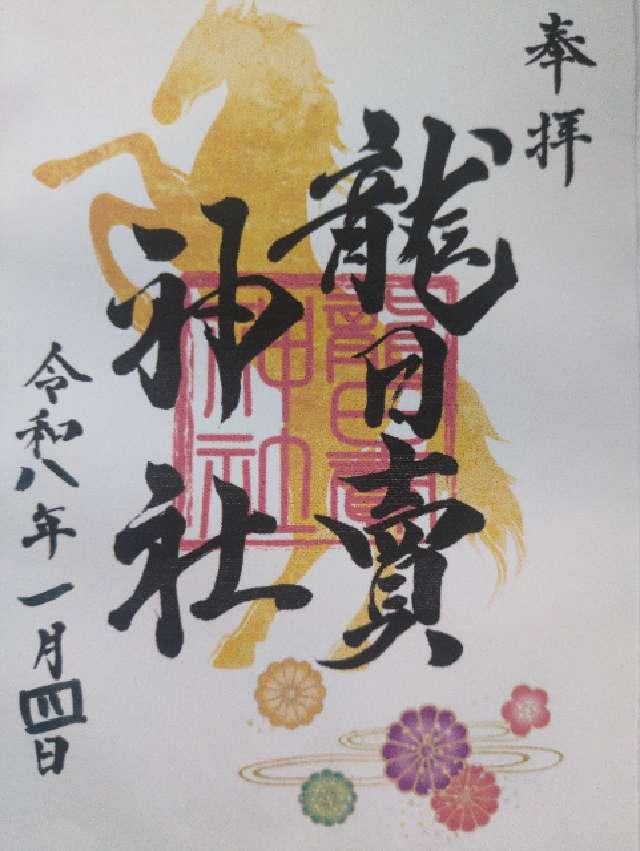 奉拝
龍日賣
神社
龍日賣
神社
令和八年一月四日